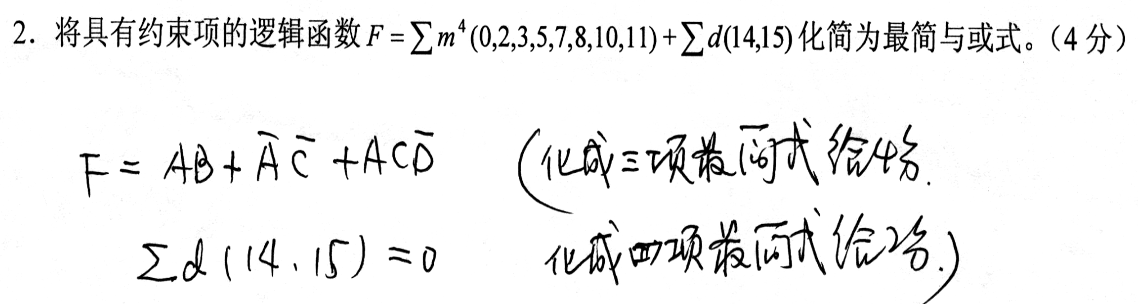 2. 将具有约束项的逻辑函数 F = ∑m⁴(0,2,3,5,7,8,10,11) + ∑d(14,15) 化简为最简与或式。（4 分）
F = AB + A̅ C̅ + ACD̅ (化成三项最简式给4分.
∑d (14、15) = 0 化成四项最简式给2分.)